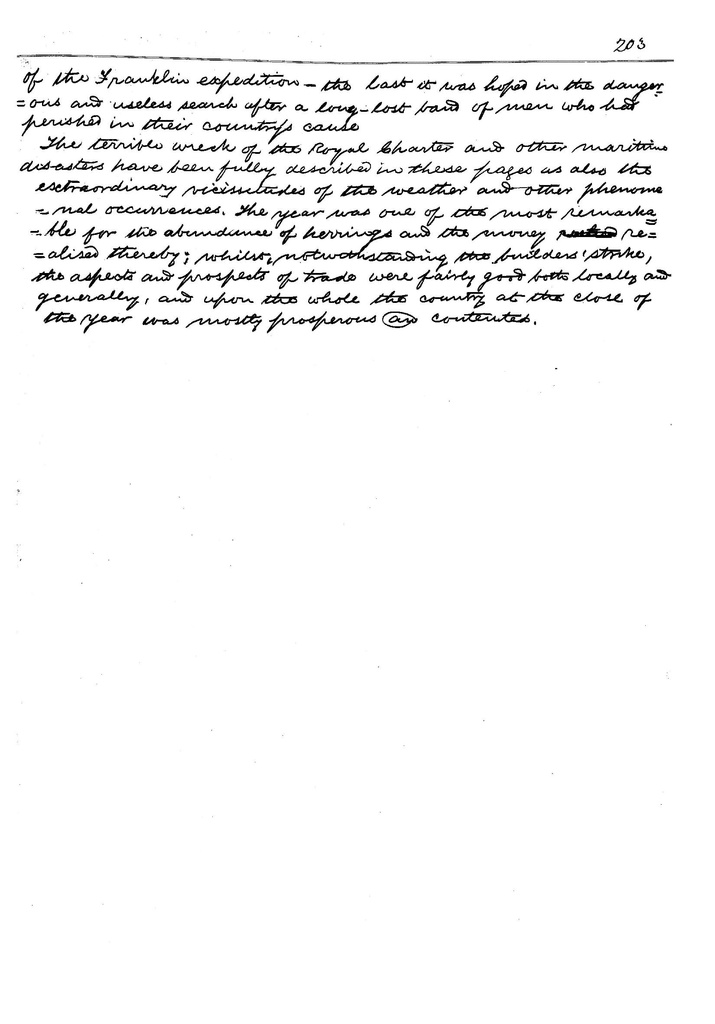 203
of the Franklin expedition – the last it was hoped in the danger=
=ous and useless search after a long-lost band of men who had
perished in their country's cause
The terrible wreck of the Royal Charter and other maritime
disasters have been fully described in these pages as also the
extraordinary vicissitudes of the weather and other phenome
=nal occurrences. The year was one of the most remarka=
=ble for the abundance of herrings and the money re=
=alised thereby; whilst, notwithstanding the builders' strike,
the aspects and prospects of trade were fairly good both locally and
generally, and upon the whole the country at the close of
the year was mostly prosperous and contented.